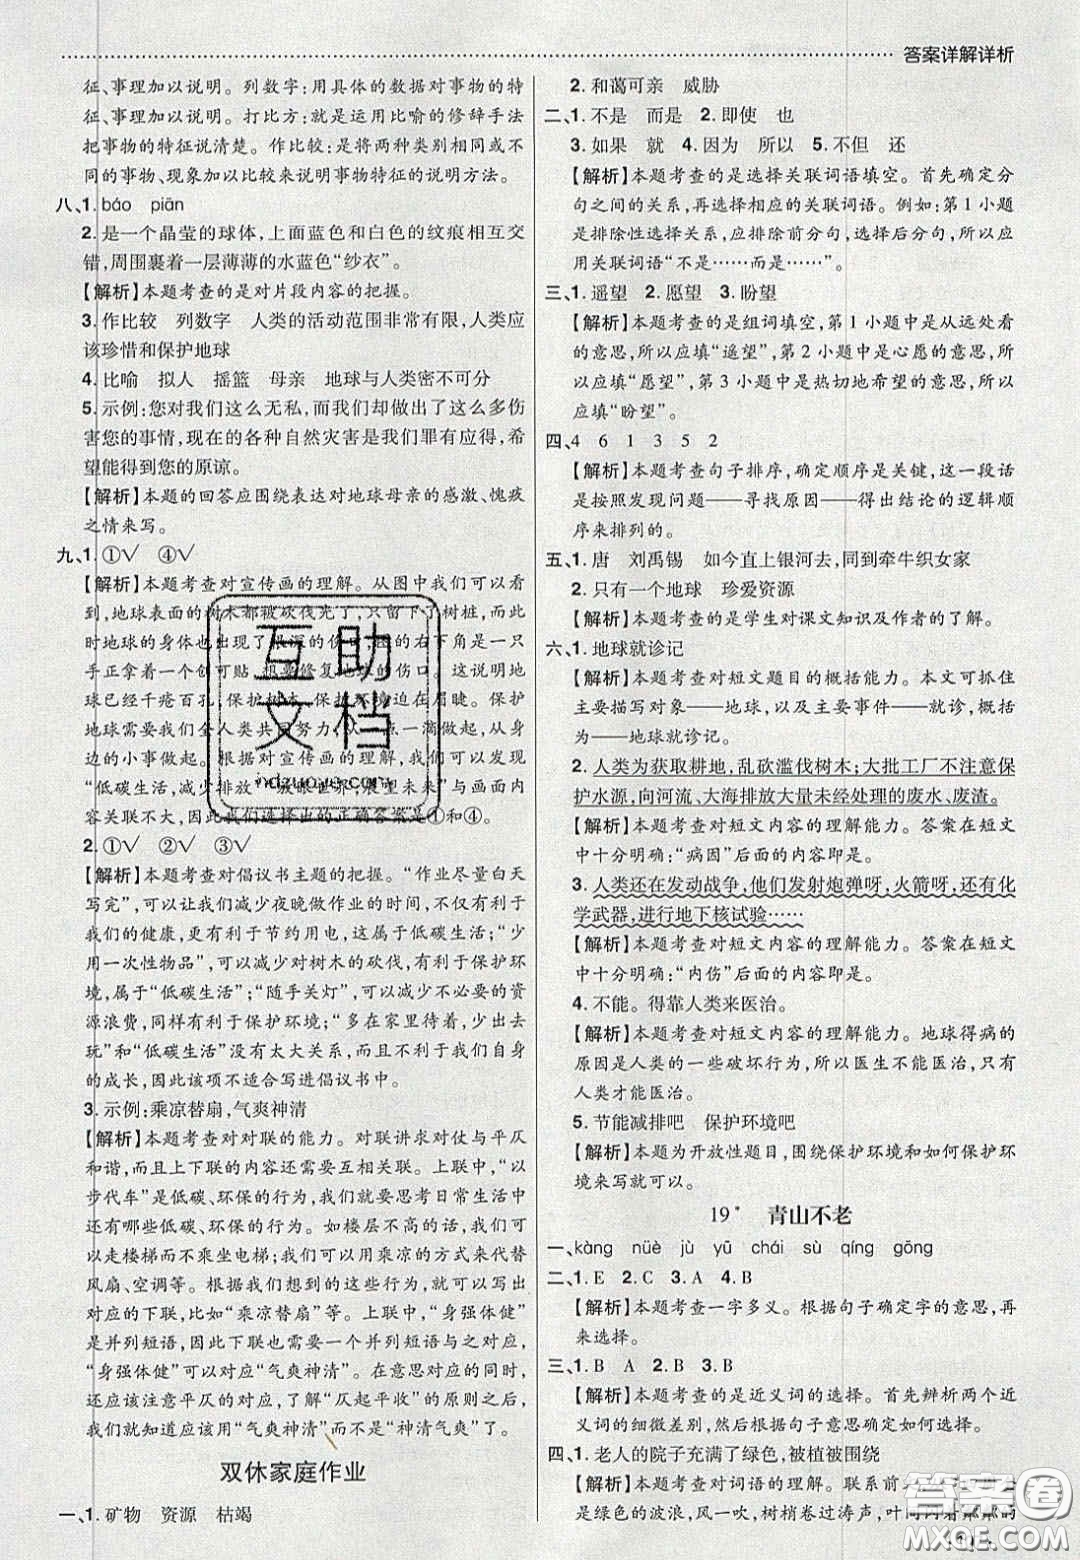 答案详解详析
征、事理加以说明。列数字：用具体的数据对事物的特
征、事理加以说明。打比方：就是用比喻的修辞手法
把事物的特征说清楚。作比较：是将两种类别相同或
不同的事物、现象加以比较来说明事物特征的说明方法。
八、1. báo piān
2. 是一个晶莹的球体，上面蓝色和白色的纹痕相互交
错，周围裹着一层薄薄的水蓝色“纱衣”。
【解析】本题考查的是对片段内容的把握。
3. 作比较 列数字 人类的活动范围非常有限，人类应
该珍惜和保护地球
4. 比喻 拟人 摇篮 母亲 地球与人类密不可分
5. 示例：您对我们这么无私，而我们却做出了这么多伤
害您的事情，现在的各种自然灾害是我们罪有应得，希
望能得到您的原谅。
【解析】本题的回答应围绕表达对地球母亲的感激、愧疚
之情来写。
九、1. ①√ ④√
【解析】本题考查对宣传画的理解。从图中我们可以看
到，地球表面的树木都被砍伐光了，只留下了树桩，而此
时地球的身体也出现了很深的伤口，画的右下角是一只
手正拿着一个创可贴，想要修复地球的伤口。这说明地
球已经千疮百孔，保护树木、保护环境迫在眉睫。保护
地球需要我们全人类共同努力，从一点一滴做起，从身
边的小事做起。根据对宣传画的理解，我们可以看出
“减少废气排放”“放眼世界，展望未来”与画面内
容关联不大，因此我们选择出的正确答案是①和④。
2. ①√ ②√ ③√
【解析】本题考查对倡议书主题的把握。“作业尽量白天
写完”，可以让我们减少夜晚做作业的时间，不仅有利于
我们的健康，更有利于节约用电，这就是低碳生活；“少
用一次性物品”，可以减少对树木的砍伐，有利于保护环
境，属于“低碳生活”；“随手关灯”，可以减少不必要的资
源浪费，同样有利于保护环境；“多在家里待着，少出去
玩”和“低碳生活”没有太大关系，而且不利于我们自身
的成长，因此该项不适合写进倡议书中。
3. 示例：乘凉替扇，气爽神清
【解析】本题考查对对联的能力。对联讲求对仗与平仄
和谐，而且上下联的内容还需要互相关联。上联中，“以
步代车”是低碳、环保的行为，我们就要思考日常生活中
还有哪些低碳、环保的行为。如楼层不高的话，我们就
走楼梯而不乘坐电梯；我们可以用乘凉的方式来代替
风扇、空调等。根据我们想到的这些行为，我们就可以写出
对应的下联，比如“乘凉替扇”等。上联中，“身强体健”
是并列短语，因此下联也需要一个并列短语与之对应，
“身强体健”可以对应“气爽神清”。在意思对应的同时，
还应该注意平仄的对应，了解“仄起平收”的原则之后，
我们就知道应该用“气爽神清”而不是“神清气爽”了。
双休家庭作业
一、1. 矿物 资源 枯竭
2. 和蔼可亲 威胁
二、1. 不是 而是 2. 即使 也
3. 如果 就 4. 因为 所以 5. 不但 还
【解析】本题考查的是选择关联词语填空。首先确定分
句之间的关系，再选择相应的关联词语。例如：第 1 小题
是排除性选择关系，应排除前分句，选择后分句，所以应
用关联词语“不是……而是……”。
三、1. 遥望 2. 愿望 3. 盼望
【解析】本题考查的是组词填空，第 1 小题中是从远处看
的意思，所以应填“遥望”，第 2 小题中是心愿的意思，所
以应填“愿望”，第 3 小题中是热切地希望的意思，所以
应填“盼望”。
四、4 6 1 3 5 2
【解析】本题考查句子排序，确定顺序是关键，这一段话
是按照发现问题——寻找原因——得出结论的逻辑顺
序来排列的。
五、1. 唐 刘禹锡 如今直上银河去，同到牵牛织女家
2. 只有一个地球 珍爱资源
【解析】本题考查的是学生对课文知识及作者的了解。
六、1. 地球就诊记
【解析】本题考查对短文题目的概括能力。本文可抓住
主要描写对象——地球，以及主要事件——就诊，概括
为——地球就诊记。
2. 人类为获取耕地，乱砍滥伐树木；大批工厂不注意保
护水源，向河流、大海排放大量未经处理的废水、废渣。
【解析】本题考查对短文内容的理解能力。答案在短文
中十分明确：“病因”后面的内容即是。
3. 人类还在发动战争，他们发射炮弹呀，火箭呀，还有化
学武器，进行地下核试验……
【解析】本题考查对短文内容的理解能力。答案在短文
中十分明确：“内伤”后面的内容即是。
4. 不能。得靠人类来医治。
【解析】本题考查对短文内容的理解能力。地球得病的
原因是人类的一些破坏行为，所以医生不能医治，只有
人类才能医治。
5. 节能减排吧 保护环境吧
【解析】本题为开放性题目，围绕保护环境和如何保护环
境来写就可以。
19* 青山不老
一、kàng nüè jù yū chái sù qíng gōng
二、1. E 2. C 3. A 4. B
【解析】本题考查一字多义。根据句子确定字的意思，再
来选择。
三、1. B A 2. B 3. B
【解析】本题考查的是近义词的选择。首先辨析两个近
义词的细微差别，然后根据句子意思确定如何选择。
四、1. 老人的院子充满了绿色，被植被围绕
【解析】本题考查对词语的理解。联系前
是绿色的波浪，风一吹，树梢卷过涛声，叶间闪着
互助
文档
hdzuoye.com
答案圈
MXQE.COM